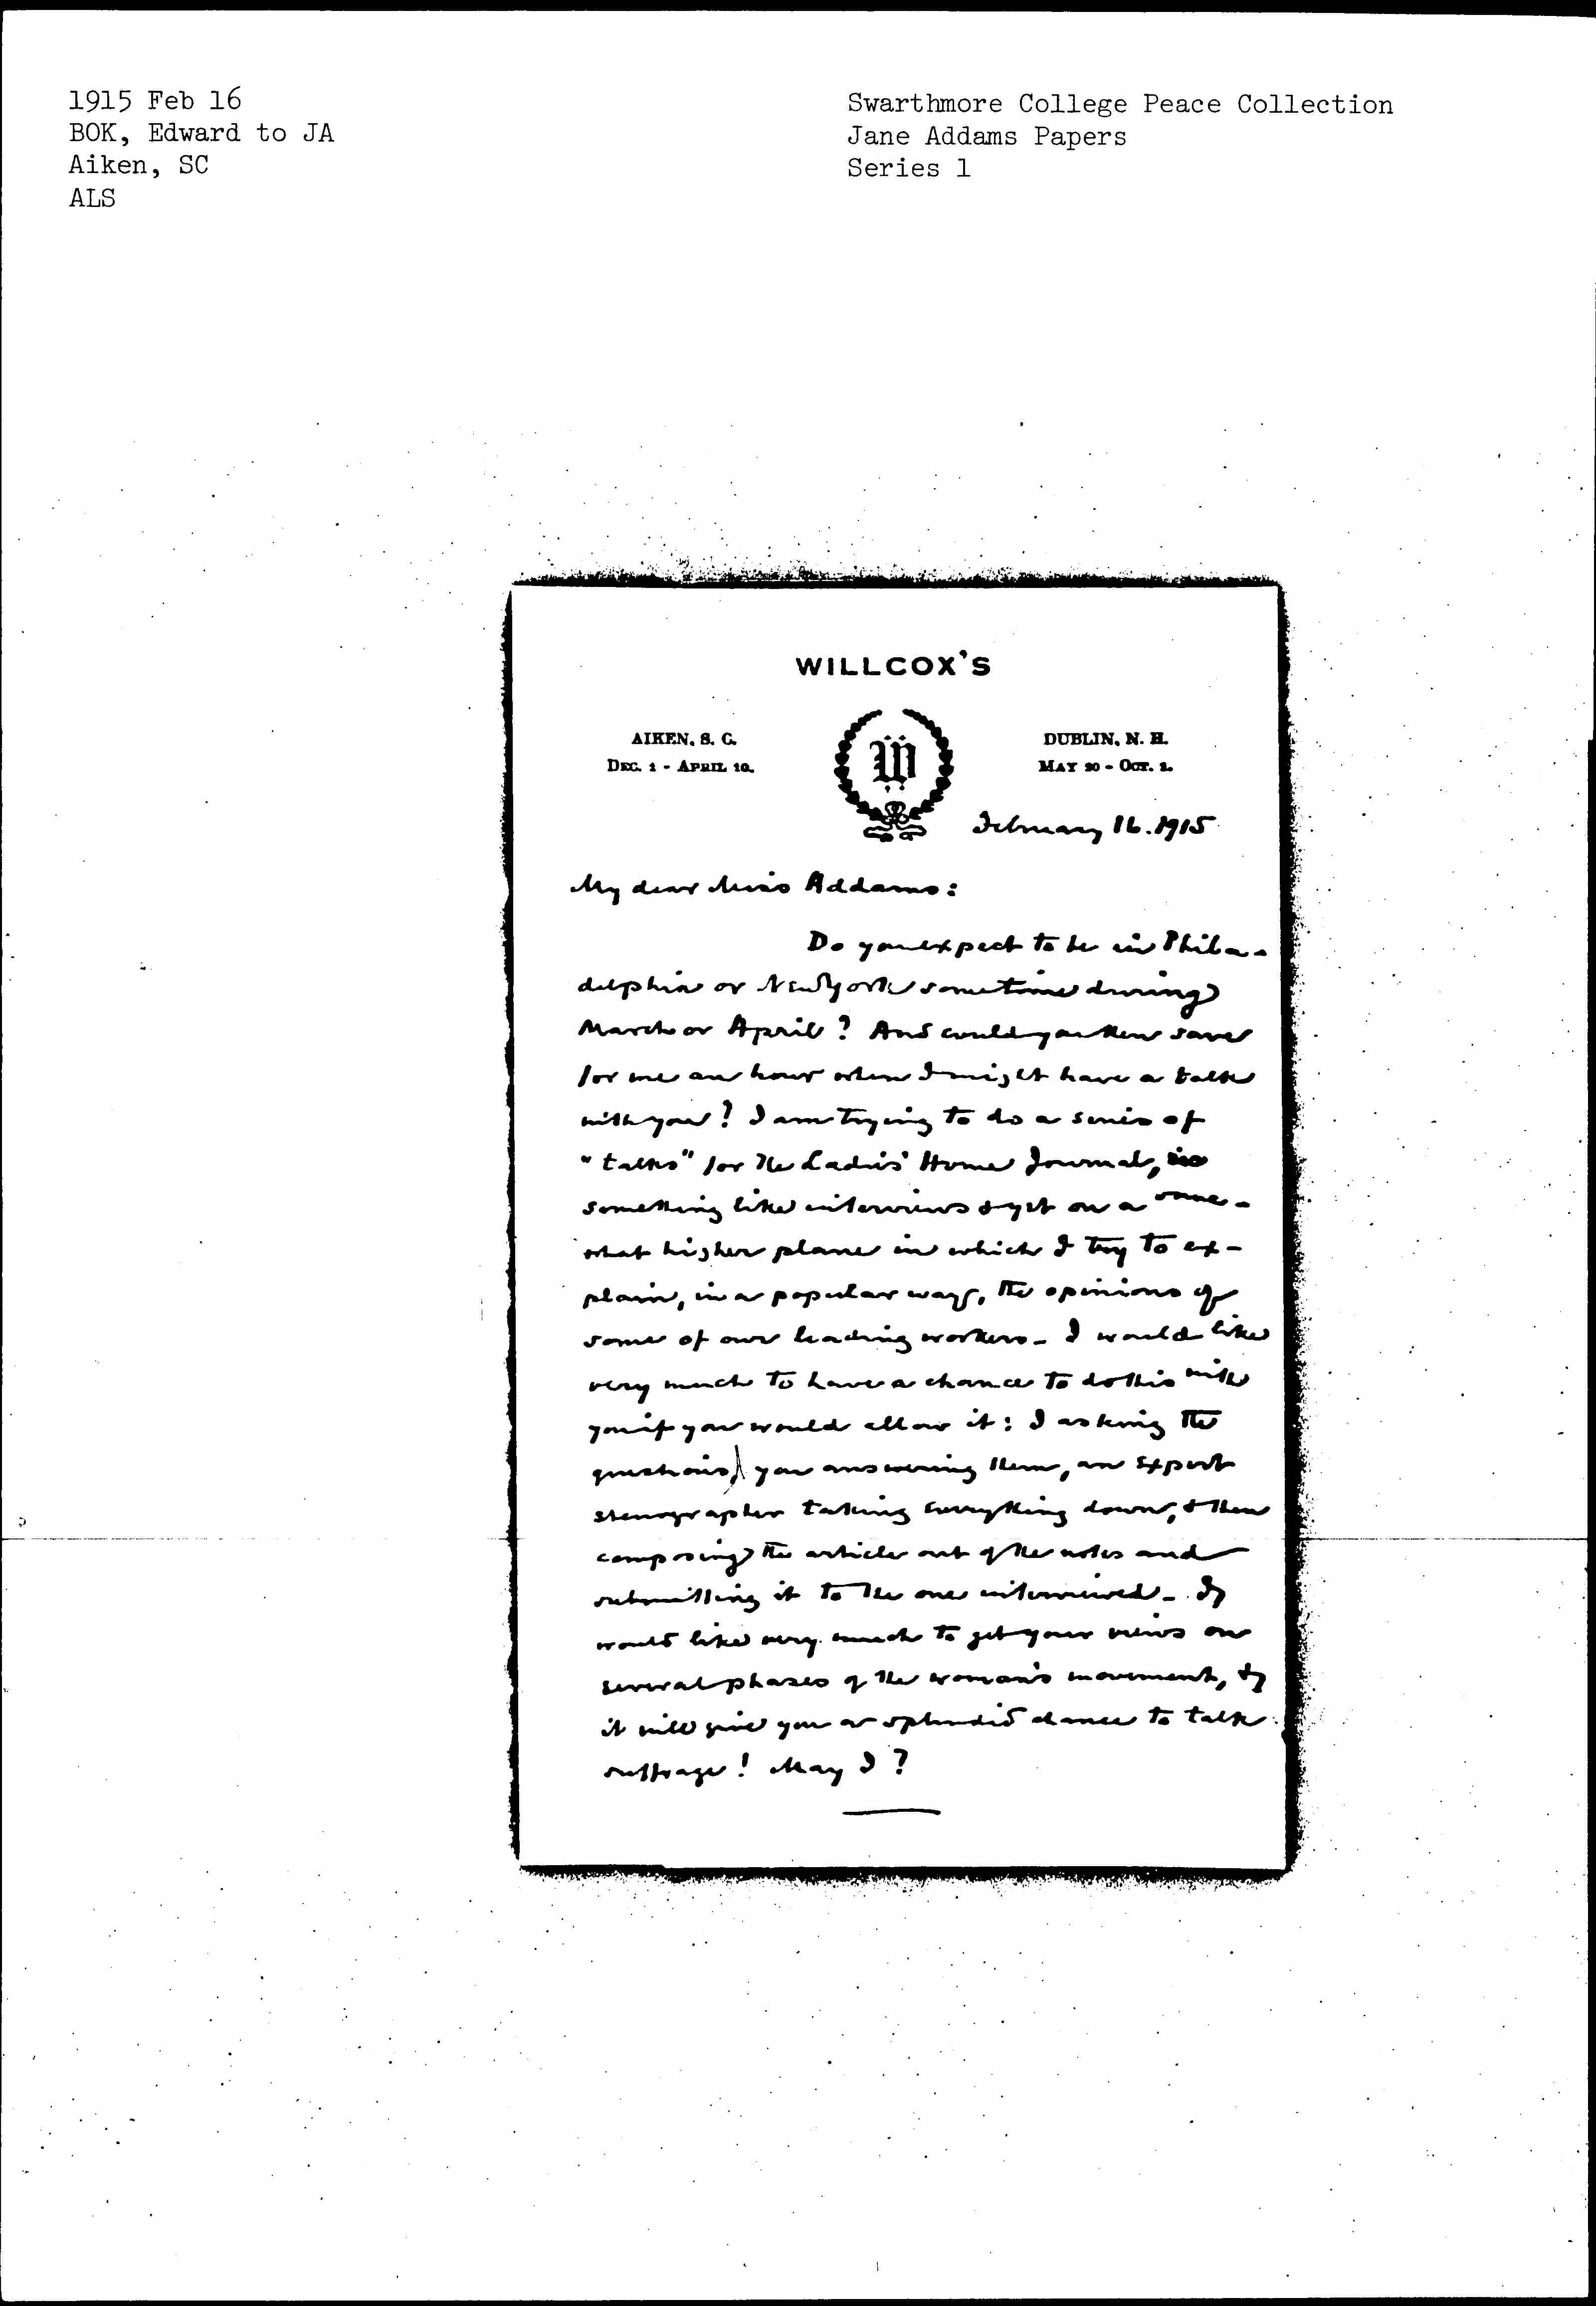 1915 Feb 16
BOK, Edward to JA
Aiken, SC
ALS
Swarthmore College Peace Collection
Jane Addams Papers
Series 1
WILLCOX'S
AIKEN, S. C.
DEC. 1 - APRIL 10.
DUBLIN, N. H.
MAY 20 - OCT. 2.
W
February 16. 1915
My dear Miss Addams:
Do you expect to be in Phila-
delphia or New York sometime during
March or April? And could you then save
for me an hour when I might have a talk
with you? I am trying to do a series of
"talks" for The Ladies' Home Journal,
something like interviews & yet on a some-
what higher plane in which I try to ex-
plain, in a popular way, the opinions of
some of our leading workers - I would like
very much to have a chance to do this with
you if you would allow it: I asking the
questions, you answering them, an expert
stenographer taking everything down, & then
composing the article out of the notes and
submitting it to the one interviewed - I
would like very much to get your views on
several phases of the woman's movement, &
it will give you a splendid chance to talk
suffrage! May I?